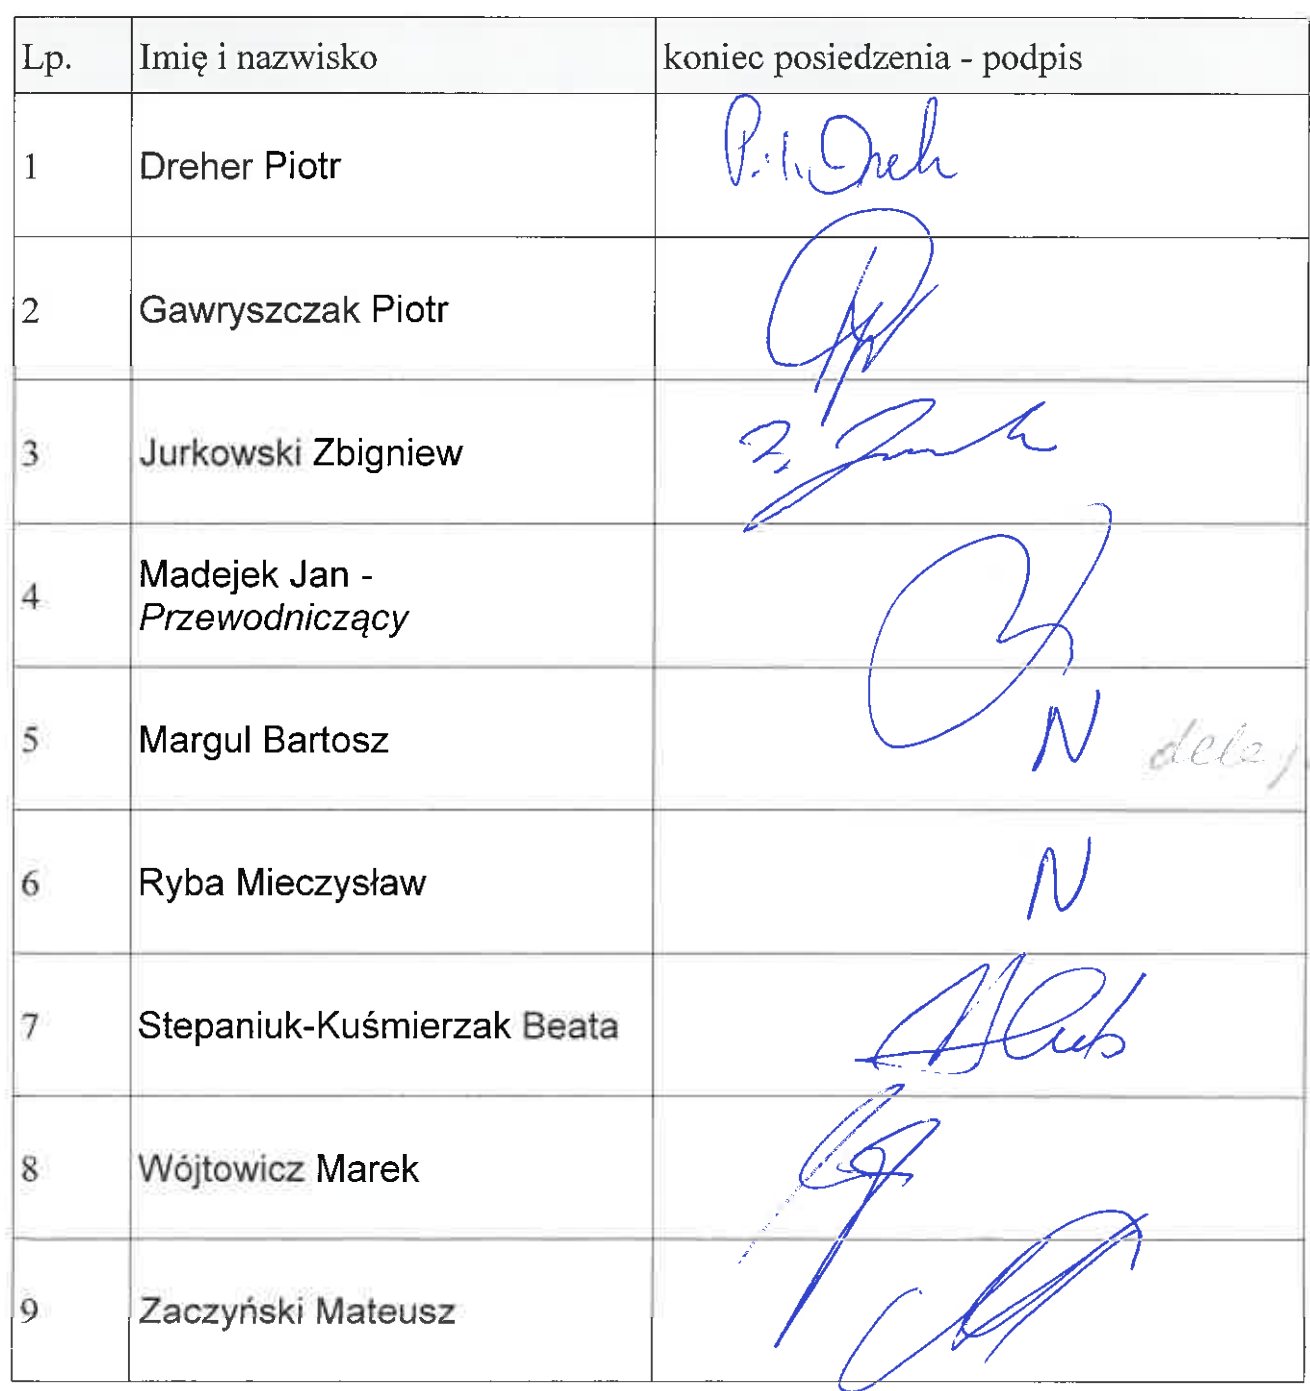 Lp. Imię i nazwisko koniec posiedzenia - podpis
1 Dreher Piotr
2 Gawryszczak Piotr
3 Jurkowski Zbigniew
4 Madejek Jan -
Przewodniczący
5 Margul Bartosz N
6 Ryba Mieczysław N
7 Stepaniuk-Kuśmierzak Beata
8 Wójtowicz Marek
9 Zaczyński Mateusz